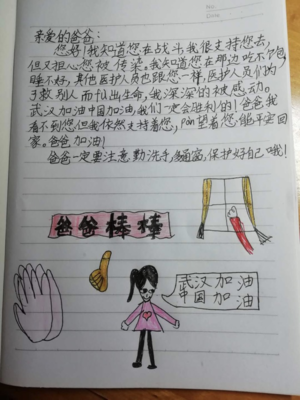 No.
Date
亲爱的爸爸:
您好!我知道您在战斗我很支持您去,
但又担心您被传染。我知道您在那边吃不饱,
睡不好,其他医护人员也跟您一样,医护人员们为
了救别人而付出生命,我深深的被感动。
武汉加油中国加油,我们一定会胜利的!爸爸我
看不到您但我依然支持着您,pàn望着您,能平安回
家。爸爸加油!
爸爸一定要注意勤洗手,多通窗,保护好自己哦!
爸爸棒棒
武汉加油
中国加油